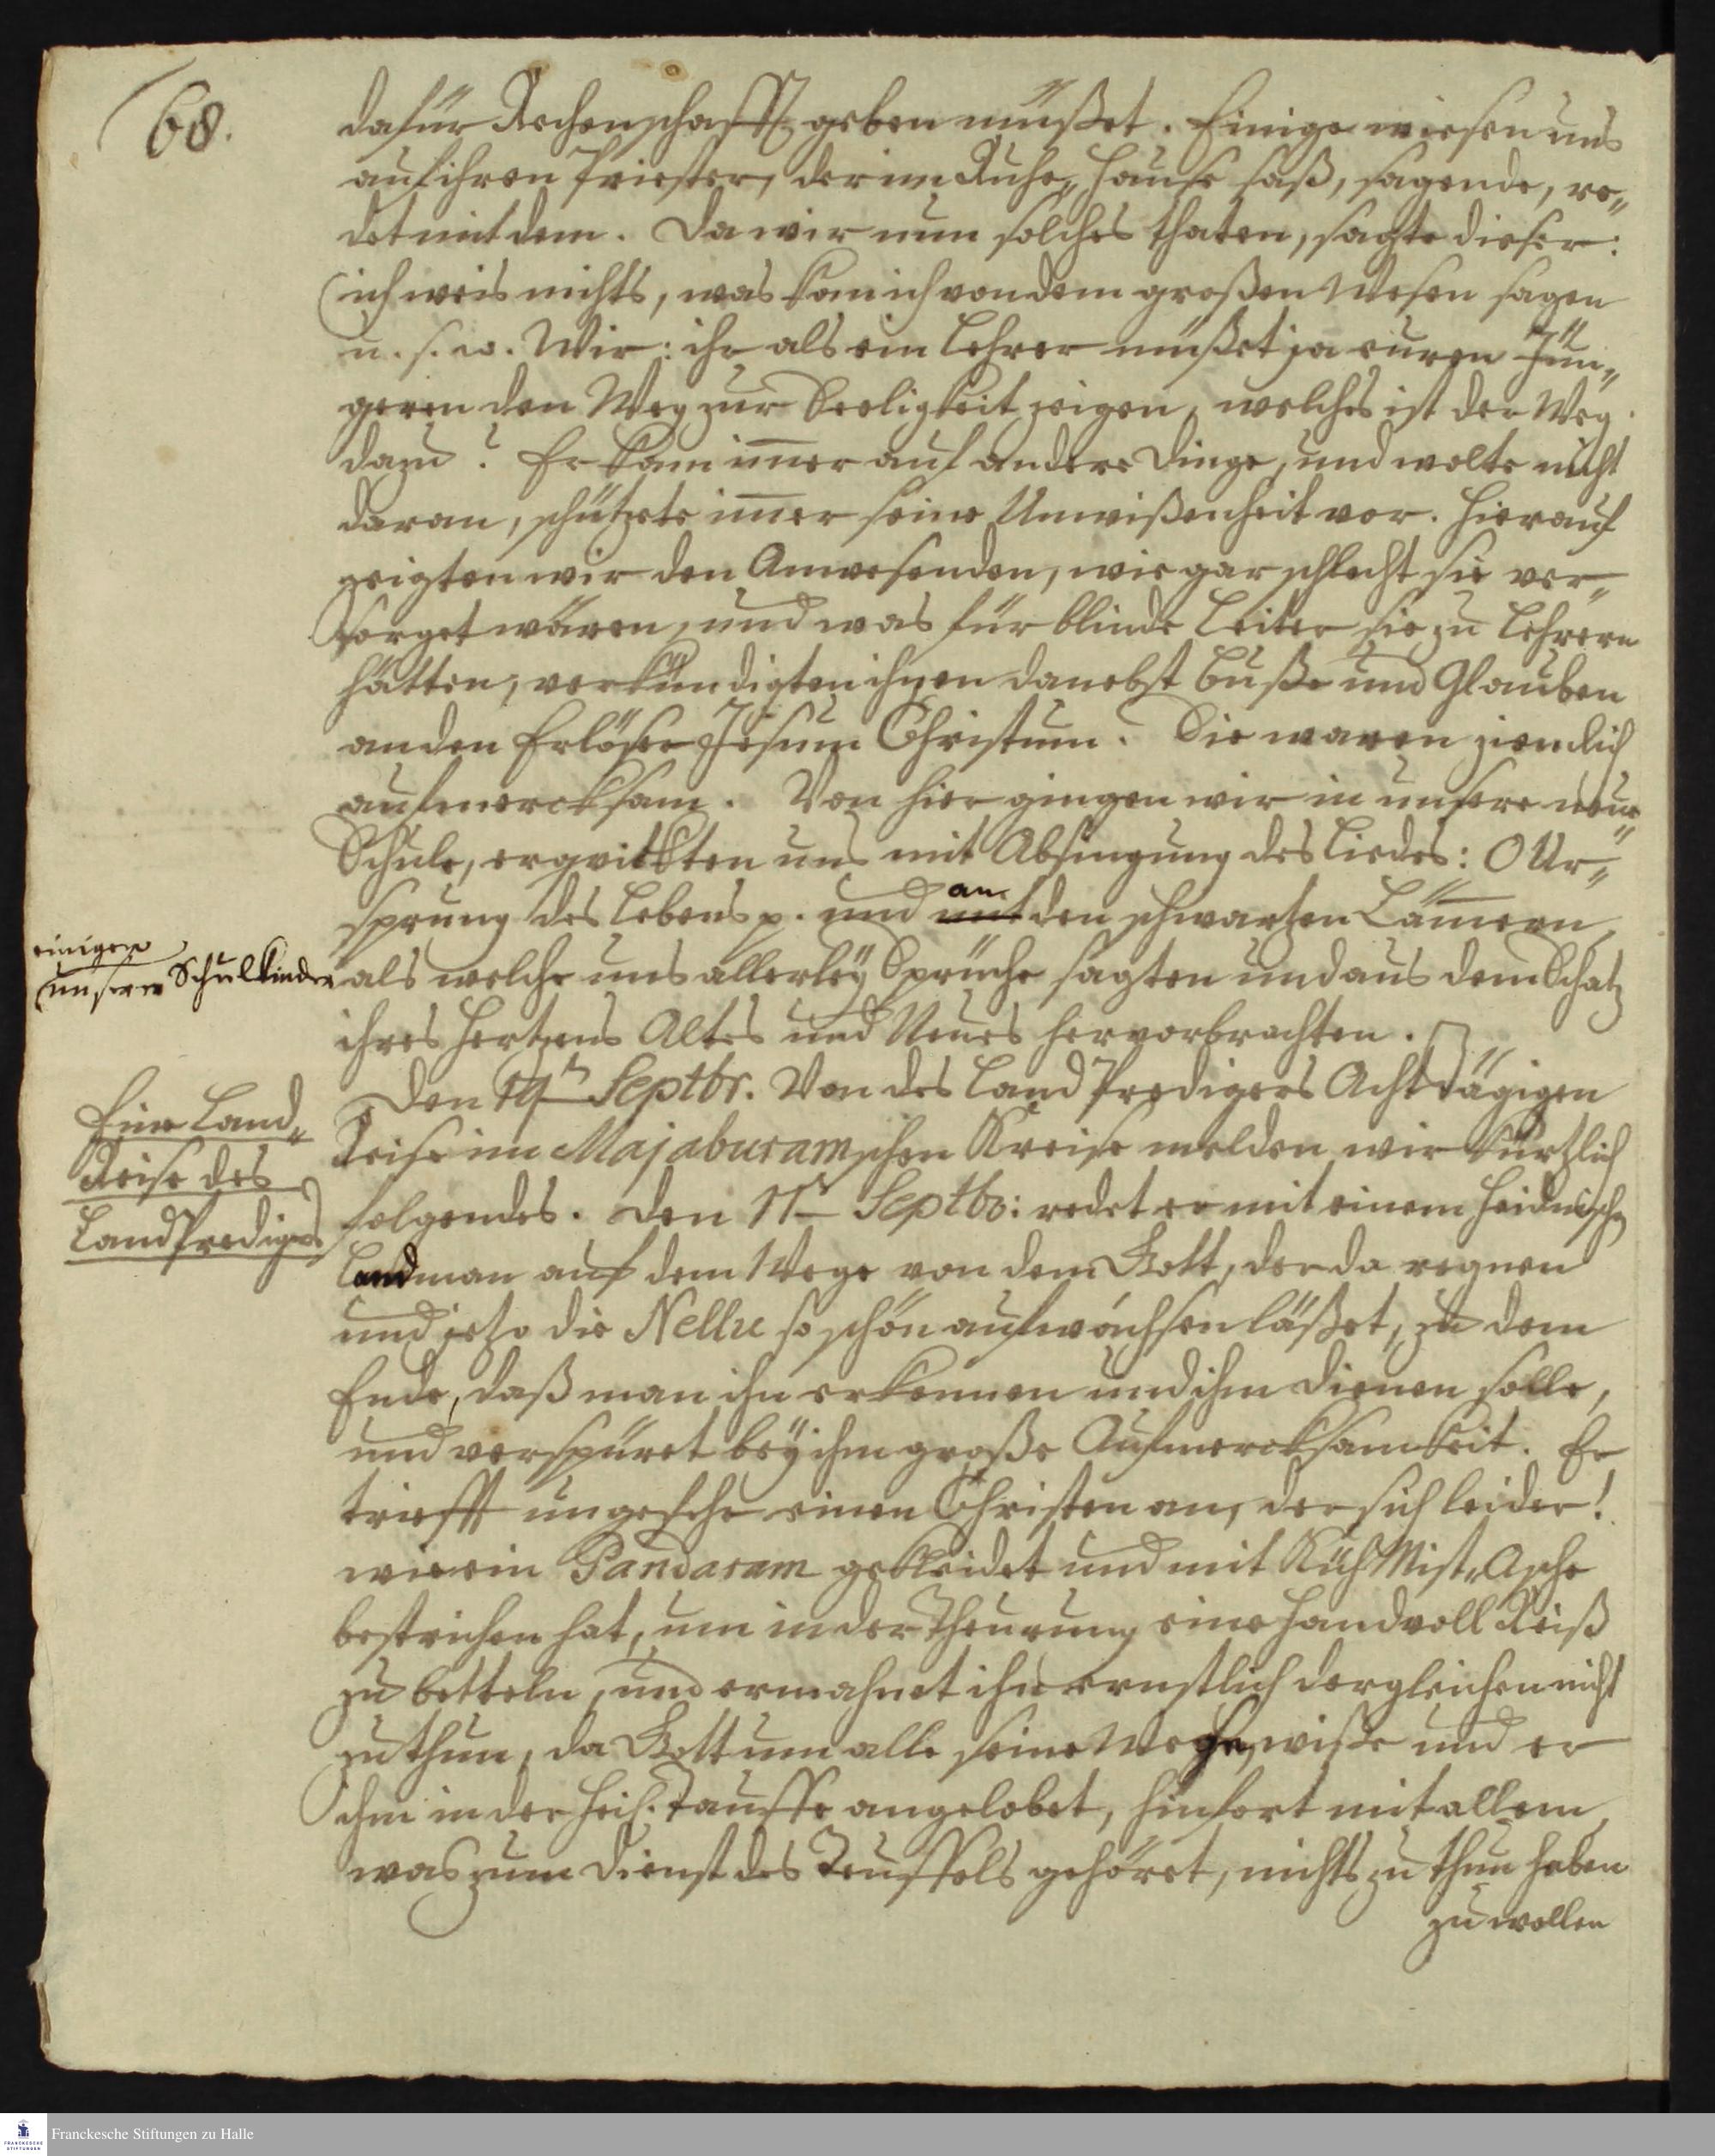 68.
dafür Rechenschafft geben müßet. Einige wiesen uns
auf ihren Priester, der im Ruhe„Hause saß, sagende, re„
det mit dem. Da wir nun solches thaten, sagte dieser:
ich weis nichts, was kan ich von dem großen Wesen sagen
u. s. w. Wir: ihr als ein Lehrer müßet ja euren Jün„
gern den Weg zur Seeligkeit zeigen, welches ist der Weg
dazu? Er kam im̄er auf andere Dinge, und wolte nicht
daran, schützete im̄er seine Unwißenheit vor. Hierauf
zeigten wir den Anwesenden, wie gar schlecht sie ver„
sorget wären, und was für blinde Leiter sie zu Lehrern
hätten, verkündigten ihnen danebst Buße und Glauben
an den Erlöser Jesum Christum. Sie waren ziemlich
aufmercksam. Von hier gingen wir in unsere neue
Schule, erquickten uns mit Absingung des Liedes: O Ur„
sprung des Lebens p. und mit an den schwartzen Läm̄ern,
einigen
unserer Schulkinder
als welche uns allerley Sprüche sagten und aus dem Schatz
ihres Hertzens Altes und Neues hervorbrachten.
Eine Land„
Reise des
Land Predigers
Den 19n Septbr. Von des Land Predigers Acht Tägigen
Reise im Majaburamschen Kreise melden wir kürtzlich
folgendes. Den 11n Septbr: redet er mit einem Heidnischen
Landman auf dem Wege von dem Gott, der da regnen
und jetzo die Nellu so schön aufwachsen läßet, zu dem
Ende, daß man ihn erkennen und ihm dienen solle,
und verspüret bey ihm große Aufmercksamkeit. Er
trifft ungefehr einen Christen an, der sich leider!
wie ein Pandaram gekleidet und mit Küh Mist„Asche
bestrichen hat, um in der Theurung eine Handvoll Reiß
zu betteln, und ermahnet ihn ernstlich dergleichen nicht
zu thun, da Gott um alle seine Wege wiße und er
ihm in der Heil. Tauffe angelobet, hinfort mit allem,
was zum Dienst des Teuffels gehöret, nichts zu thun haben
zu wollen
Franckesche Stiftungen zu Halle